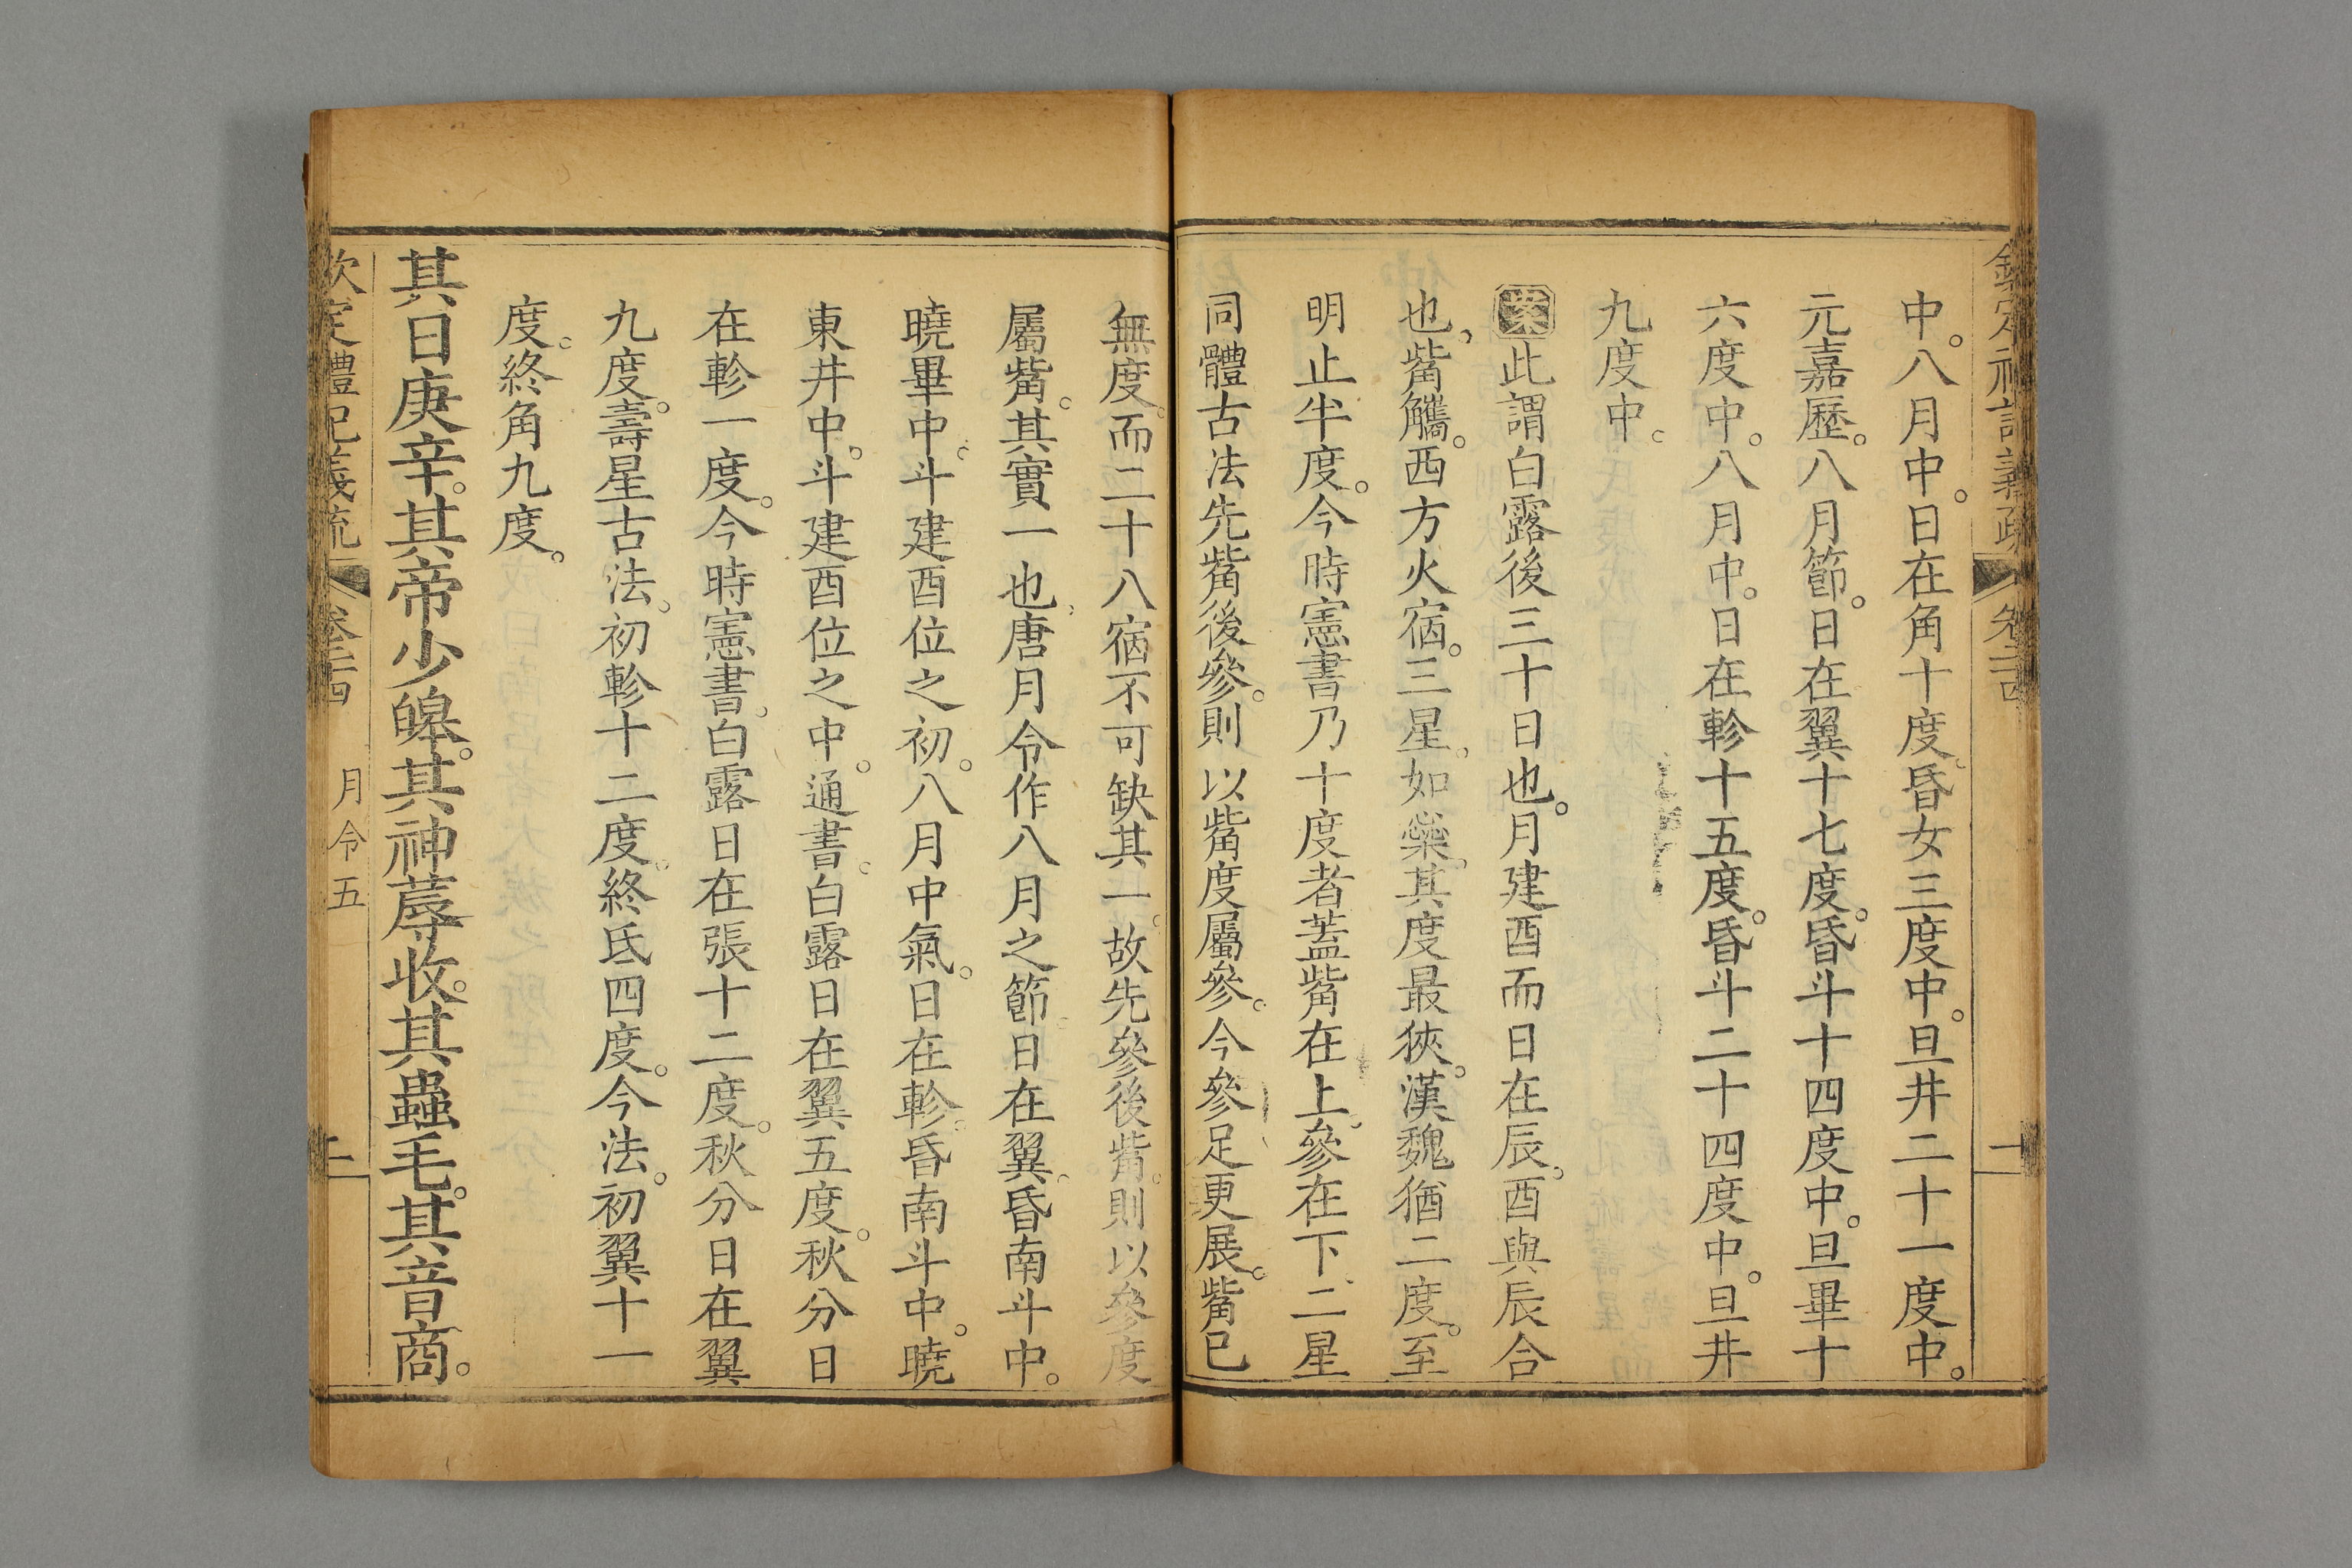 中。八月中。日在角十度。昏女三度中。旦井二十一度中。
元嘉歷。八月節。日在翼十七度。昏斗十四度中。旦畢十
六度中。八月中。日在軫十五度。昏斗二十四度中。旦井
九度中。
案此謂白露後三十日也。月建酉而日在辰。酉與辰合
也。觜觿。西方火宿。三星。如蘂。其度最狹。漢魏猶二度。至
明止半度。今時憲書乃十度者蓋觜在上。參在下。二星
同體古法先觜後參。則以觜度屬參。今參足更展。觜已
無度。而二十八宿不可缺其一。故先參後觜。則以參度
屬觜。其實一也。唐月令作八月之節。日在翼。昏南斗中。
曉畢中。斗建酉位之初。八月中氣。日在軫。昏南斗中。曉
東井中。斗建酉位之中。通書。白露日在翼五度。秋分日
在軫一度。今時憲書。白露日在張十二度。秋分日在翼
九度。壽星古法。初軫十二度。終氐四度。今法。初翼十一
度。終角九度。
其日庚辛。其帝少皞。其神蓐收。其蟲毛。其音商。
欽定禮記義疏 卷二十四 月令五